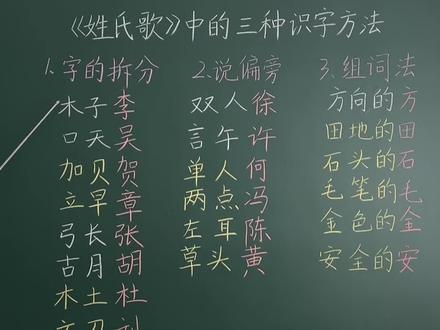 《姓氏歌》中的三种识字方法
1.字的拆分 2.说偏旁 3.组词法
木子李 双人徐 方向的方
口天吴 言午许 田地的田
加贝贺 单人何 石头的石
立早章 两点冯 毛笔的毛
弓长张 左耳陈 金色的金
古月胡 草头黄 安全的安
木土杜